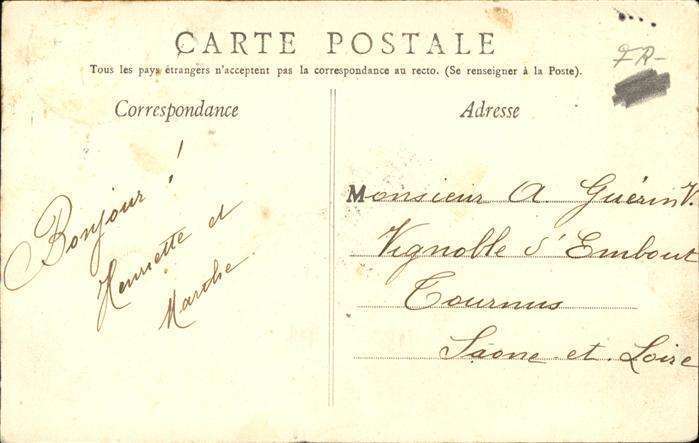 CARTE POSTALE
Tous les pays étrangers n'acceptent pas la correspondance au recto. (Se renseigner à la Poste).
FR-
Correspondance
Bonjour !
Henriette et
Marthe.
Adresse
Monsieur A Guérin V.
Vignoble d'Embout
Tournus
Saone-et-Loire